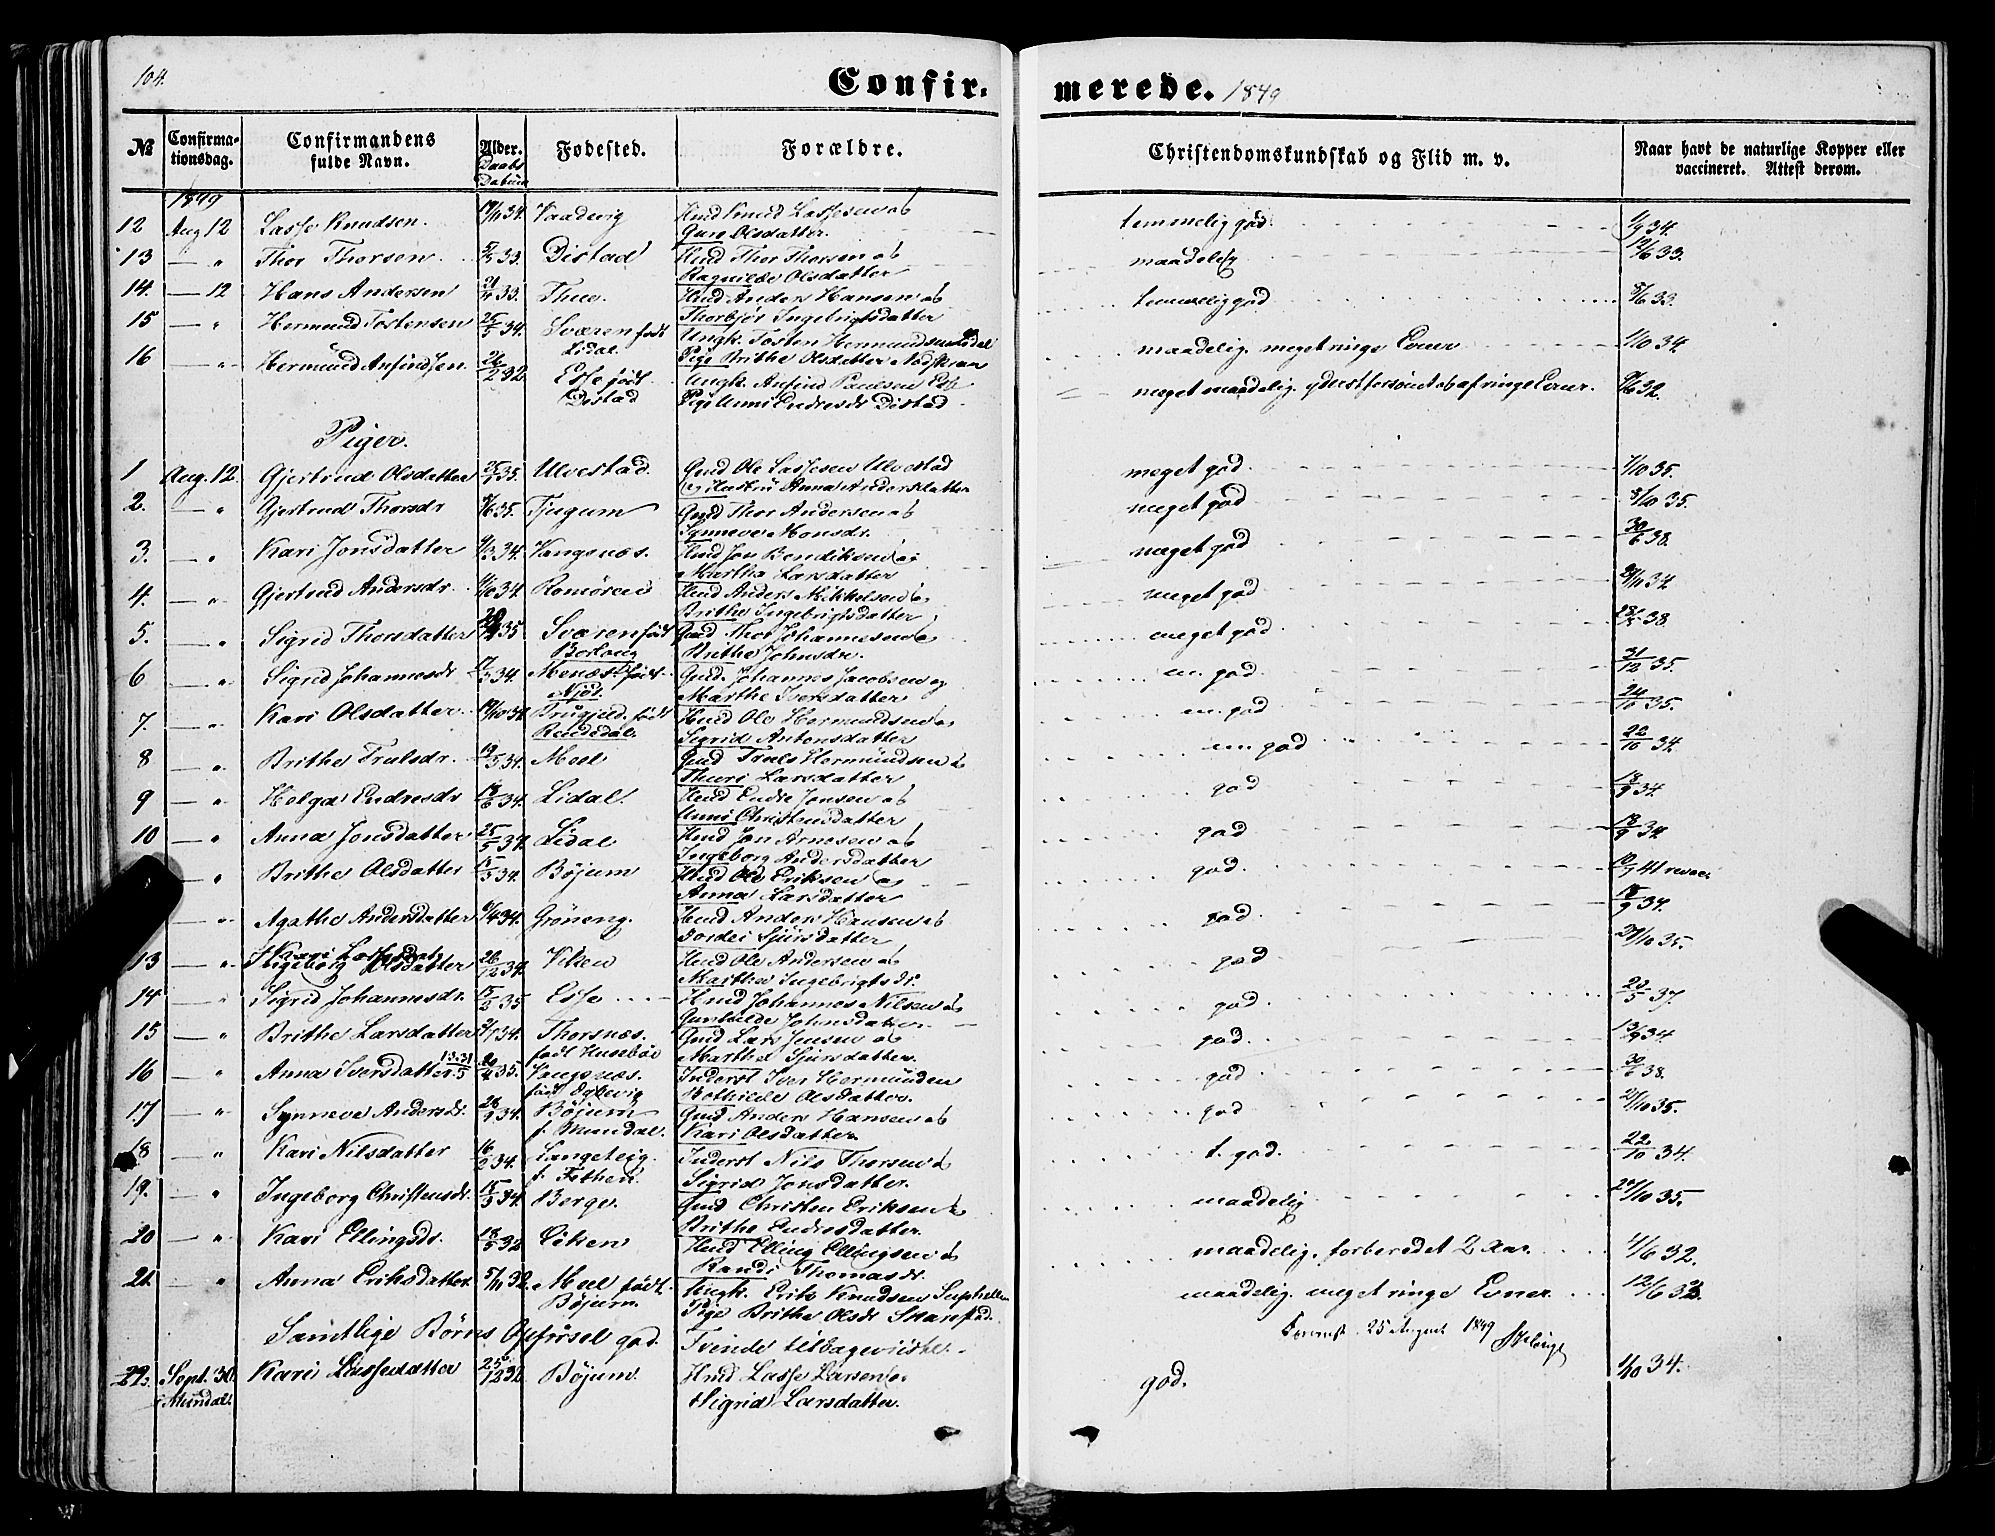 104.
Confir-
merede. 1849
No
Confirmationsdag.
Confirmandens fulde Navn.
Alder. Daabs Datum
Fødested.
Forældre.
Christendomskundskab og Flid m. v.
Naar havt de naturlige Kopper eller vaccineret. Attest derom.
1849
12 Aug 12 Lasse Knudsen. 34. Vaadevig Hmd Knud Lassesen og Guro Olsdatter. temmelig god. 1/9 34.
13 — " Thor Thorsen 33. Distad Hmd Thor Thorsen og Ragnilde Olsdatter maadelig 12/6 33.
14. — 12 Hans Andersen 33. Thue. Hmd Anders Hansen og Thorbjør Ingebrigtsdatter temmelig god 8/6 33.
15 — " Hermund Tostensen 25/5 34. Sværen født Lidal. Ungk. Tosten Hermundsen Pige Brithe Olsdatter maadelig. meget ringe Evner 1/10 34.
16 — " Hermund Anfindsen. 26/2 32 Esse født Distad Ungk. Anfind Paulsen Pige Unni Endresdr Distad meget maadelig. 32.
Piger.
1 Aug. 12. Gjertrud Olsdatter 35. Ulvestad. Gmd Ole Lassesen Ulvestad og Hustru Anna Andersdatter meget god. 1/10 35.
2. — " Gjertrud Thorsdr 35. Tjugum Gmd Thor Andersen og Synneve Monsdr. meget god 8/10 35.
3. — " Kari Jonsdatter 34. Vangsnæs. Hmd Jon Bendiksen og Martha Larsdatter meget god 30/6 38.
4. — " Gjertrud Andersdr. 34. Romøren Hmd Anders Mikkelsen og Brithe Ingebrigtsdatter meget god 34.
5. — " Sigrid Thorsdatter 35 Sværen født Gmd Thor Johannesen og Brithe Johnsdr. meget god 38.
6 — " Sigrid Johannesdr 34. Menæs født Njøs. Gmd. Johannes Jacobsen og Marthe Iversdatter m. god 31/12 35.
7. — " Kari Olsdatter 34 født Rendedal. Hmd Ole Hermundsen og Sigrid Antonsdatter m. god 24/10 35.
8 — " Brithe Trulsdr. 19/5 34. Mell Gmd Truls Hermundsen og Thuri Larsdatter m. god 22/10 34.
9 — " Helga Endresdr 18/6 34. Lidal. Hmd Endre Jonsen og Unni Christensdatter god 18/9 34.
10 — " Anna Jonsdatter 25/5 34. Lidal Hmd Jon Arnesen og Ingeborg Andersdatter god 18/9 34.
" Brithe Olsdatter 15/5 34. Bøjum Hmd Ole Eriksen og Anna Larsdatter god. 41
" Agathe Andersdatter 34. Grøneng. Hmd Anders Hansen og Jordei Sjursdatter god. 18/9 34.
13 — " Ingeborg Olsdatter 26/12 34. Viken Hmd Ole Andersen og Martha Ingebrigtsdr. god 35.
14 — " Sigrid Johannesdr. 15/2 35 Esse Hmd Johannes Nilsen og Gunhilde Johnsdatter. god. 23/5 37.
15 — " Brithe Larsdatter 34. Thorsnæs. født Husebøe Gmd Lars Jensen og Martha Sjursdatter. god. 13/9 34
16 — " Anna Iversdatter. 35. Vangsnæs. født Inderst Iver Hermunden Bothilde Olsdatter. god 30/6 38.
17 — " Synneve Andersdr. 28/9 34. Bøjum f. Mundal. Gmd Anders Hansen og Kari Olsdatter. god 35.
18 — " Kari Nilsdatter 16/2 34. Langeteig f. Fethen. Inderst Nils Thorsen og Sigrid Jonsdatter. t. god. 22/10 34.
19. — " Ingeborg Christensdr. 15/9 34. Berge. Gmd Christen Eriksen og Brithe Endresdatter. maadelig 24/10 35.
20 — " Kari Ellingsdr. 18/5 32 Eiken Hmd Elling Ellingsen og Randi Thomasdr. maadelig. forberedet 2 Aar. 4/6 32.
21. — " Anna Eriksdatter. 5/11 32. Mell født Bøjum. Ungk. Erik Knudsen Suphellen Pige Brithe Olsdr maadelig. meget ringe Evner. 12/6 33.
Samtlige Børns Opførsel god. Tvende tilbageviste. 25 August 1849
22. Sept. 30. Mundal. Kari Lassedatter 32 Bøjum. Hmd. Lasse Larsen og Sigrid Larsdatter. god. 1/10 34.